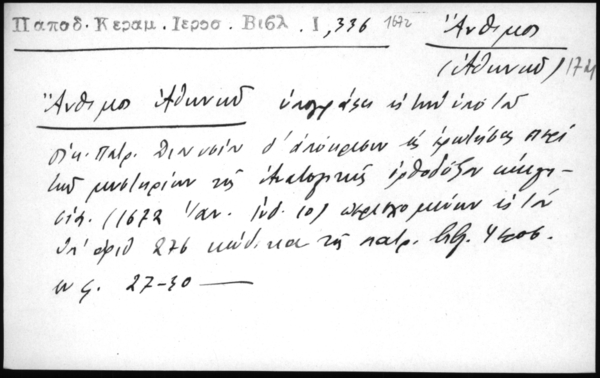 Παπαδ. Κεραμ. Ιεροσ. Βιβλ. Ι, 336 1672
Ἄνθιμος
(Ἀθηνῶν) 172
Ἄνθιμος Ἀθηνῶν ὑπογράφει εἰς τὴν ὑπὸ τοῦ
οἰκ. πατρ. Διονυσίου δ' ἀπόκρισιν εἰς ἐρωτήσεις περὶ
τῶν μυστηρίων τῆς Ἀνατολικῆς ὀρθοδόξου ἐκκλη-
σίας. (1672 Ἰαν. Ἰνδ. 10) περιεχομένην εἰς τὸν
ὑπ' ἀριθ 276 κώδικα τῆς πατρ. βιβ. Ἱεροσ.
ἐν φ. 27-30